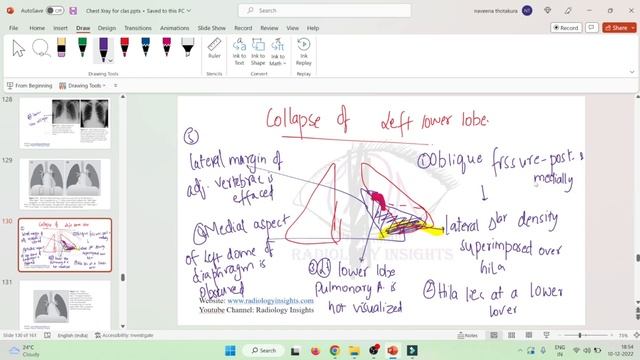 AutoSave Off Chest Xray for clas.ppts • Saved to this PC Search naveena thotakura NT
File Home Insert Draw Design Transitions Animations Slide Show Record Review View Help Record Share
Ruler
Ink to Text
Ink to Shape
Ink to Math
Ink Replay
Drawing Tools
Stencils
Convert
Replay
From Beginning Drawing Tools
128
129
130
131
Collapse of Left lower lobe
⑤
lateral margin of
adj. vertebrae is
effaced
④ Medial aspect
of left dome of
diaphragm is
obscured
① Oblique fissure - post. &
medially
↓
lateral Δlar density
superimposed over
hila
② Hila lies at a lower
lover
③ lower lobe
Pulmonary A. is
not visualized
RADIOLOGY INSIGHTS
Website: www.radiologyinsights.com
Youtube Channel: Radiology Insights
Slide 130 of 161 English (India) Accessibility: Investigate Notes 73%
24°C
Fog
Search
ENG
IN
18:54
10-12-2022